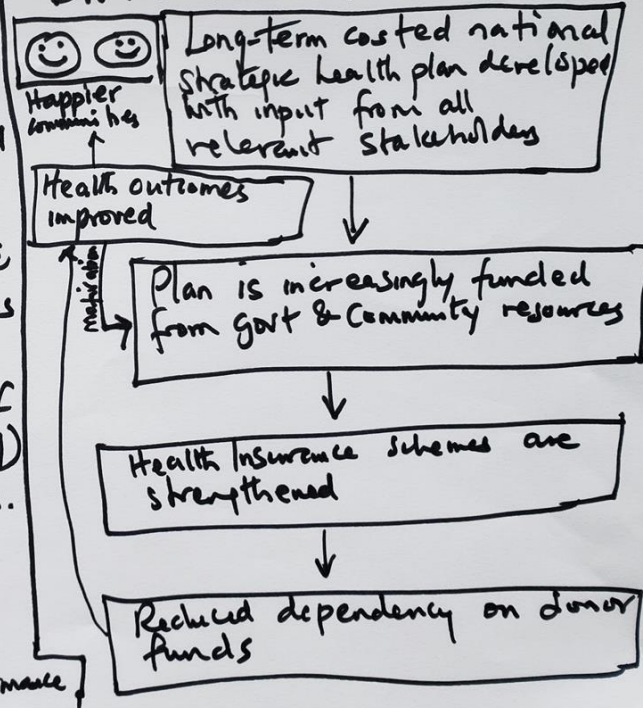 Long-term costed national
strategic health plan developed
with input from all
relevant stakeholders
Happier
communities
Health outcomes
improved
motivation
Plan is increasingly funded
from govt & community resources
Health Insurance schemes are
strengthened
Reduced dependency on donor
funds